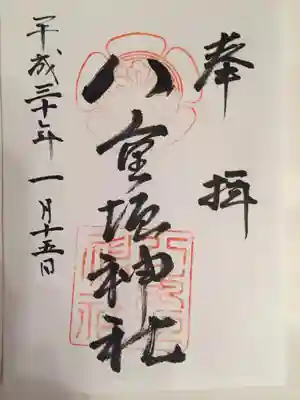 奉拝
八重垣神社
平成三十年一月十五日